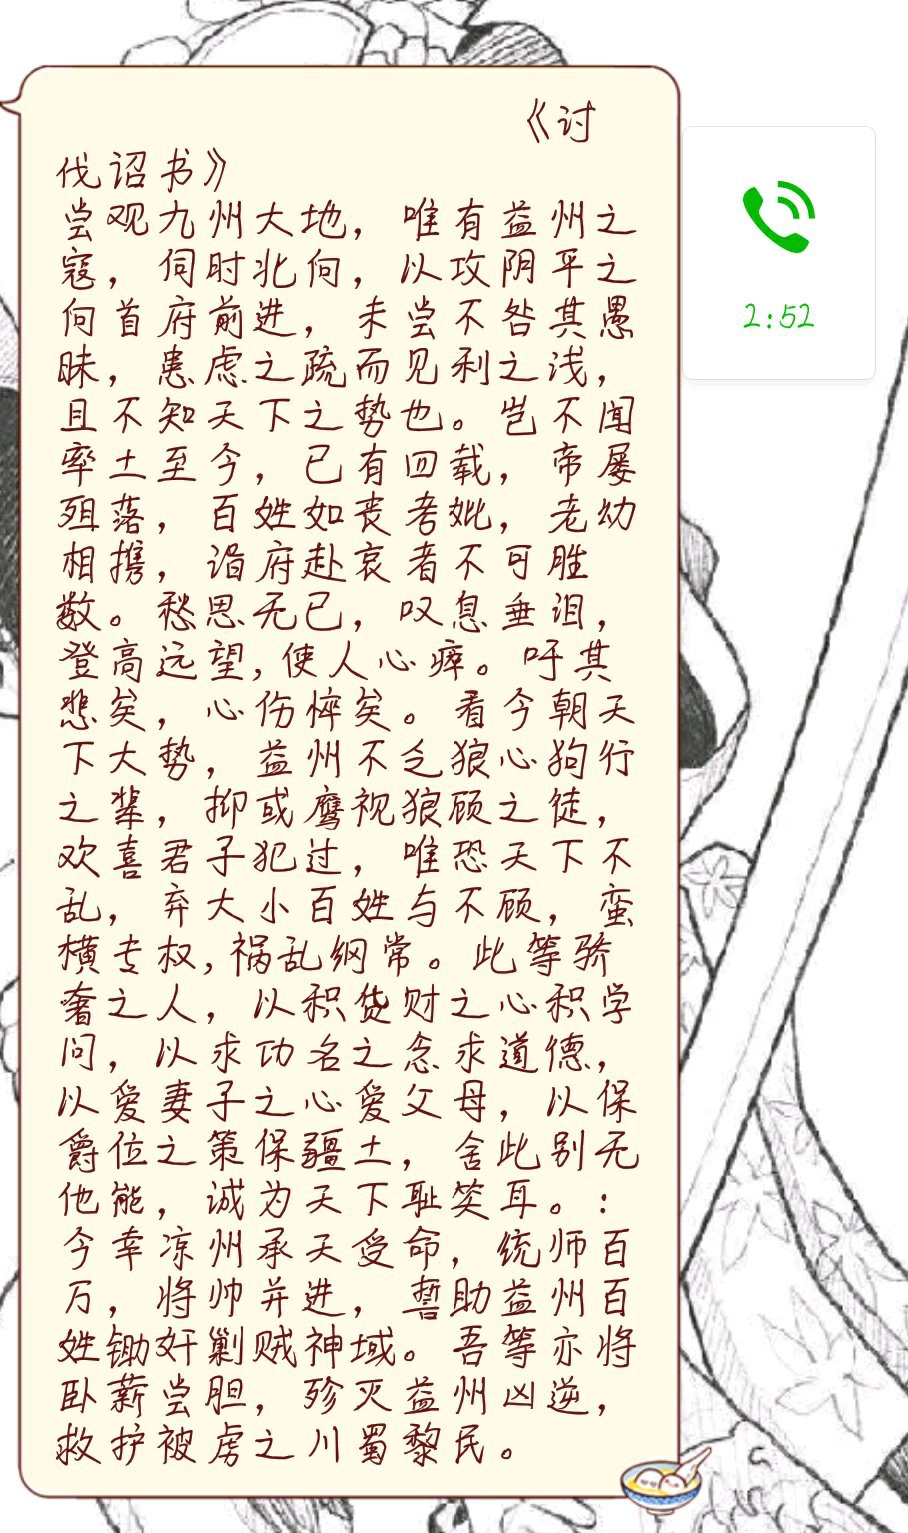 《讨
伐诏书》
尝观九州大地，唯有益州之
寇，伺时北向，以攻阴平之
向首府前进，未尝不咎其愚
昧，患虑之疏而见利之浅，
且不知天下之势也。岂不闻
率土至今，已有四载，帝屡
殂落，百姓如丧考妣，老幼
相携，诣府赴哀者不可胜
数。愁思无已，叹息垂泪，
登高远望，使人心瘁。吁其
悲矣，心伤悴矣。看今朝天
下大势，益州不乏狼心狗行
之辈，抑或鹰视狼顾之徒，
欢喜君子犯过，唯恐天下不
乱，弃大小百姓与不顾，蛮
横专权，祸乱纲常。此等骄
奢之人，以积货财之心积学
问，以求功名之念求道德，
以爱妻子之心爱父母，以保
爵位之策保疆土，舍此别无
他能，诚为天下耻笑耳。：
今幸凉州承天受命，统师百
万，将帅并进，誓助益州百
姓锄奸剿贼神域。吾等亦将
卧薪尝胆，殄灭益州凶逆，
救护被虏之川蜀黎民。
2:52